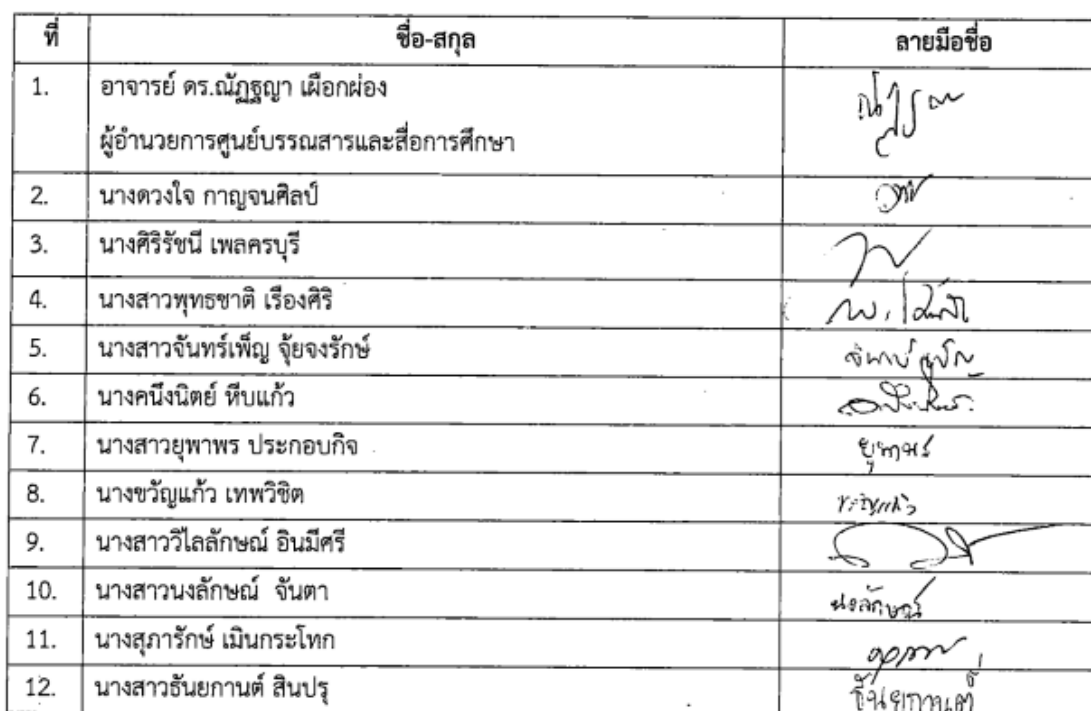 ที่ ชื่อ-สกุล ลายมือชื่อ
1. อาจารย์ ดร.ณัฏฐญา เผือกผ่อง
ผู้อำนวยการศูนย์บรรณสารและสื่อการศึกษา
2. นางดวงใจ กาญจนศิลป์
3. นางศิริรัชนี เพลครบุรี
4. นางสาวพุทธชาติ เรืองศิริ
5. นางสาวจันทร์เพ็ญ จุ้ยจงรักษ์
6. นางคนึงนิตย์ หีบแก้ว
7. นางสาวยุพาพร ประกอบกิจ ยุพาพร
8. นางขวัญแก้ว เทพวิชิต ขวัญแก้ว
9. นางสาววิไลลักษณ์ อินมีศรี
10. นางสาวนงลักษณ์ จันตา นงลักษณ์
11. นางสุภารักษ์ เมินกระโทก
12. นางสาวธันยกานต์ สินปรุ ธันยกานต์